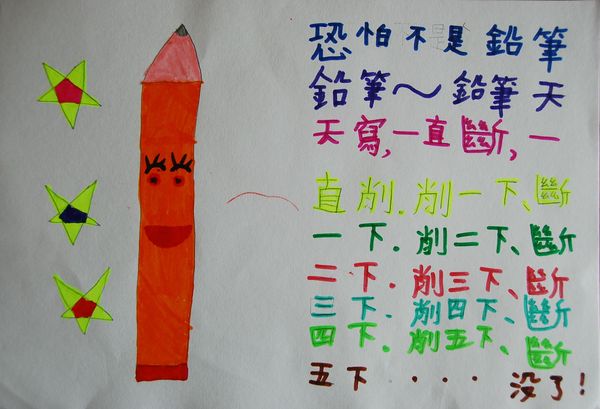 恐怕不是鉛筆
鉛筆～鉛筆天
天寫,一直斷,一
直削.削一下、斷
一下.削二下、斷
二下.削三下、斷
三下.削四下、斷
四下.削五下、斷
五下...没了!